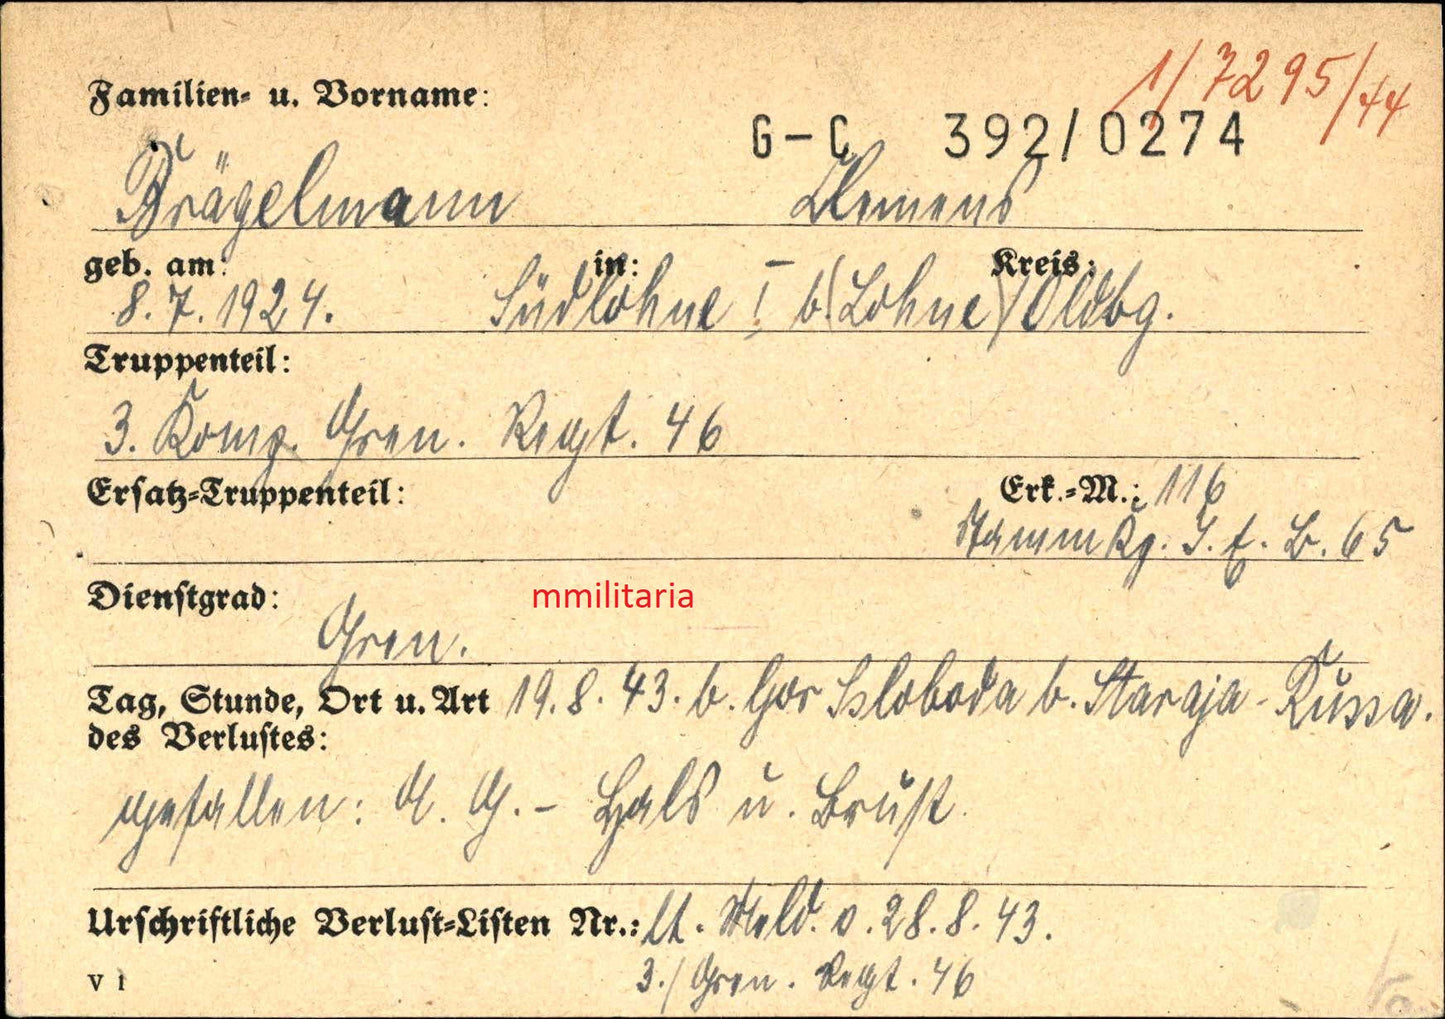 1/7295/44
Familien- u. Vorname:
G-C 392/0274
Brägelmann Clemens
geb. am: in: Kreis:
8.7.1924. Südlohne I b (Lohne)/Oldbg.
Truppenteil:
3. Komp. Gren. Regt. 46
Ersatz-Truppenteil: Erk.-M.: 116
Stamm Kp. I. E. B. 65
Dienstgrad: mmilitaria
Gren.
Tag, Stunde, Ort u. Art 19.8.43. b. Gor Ssloboda b. Staraja-Russa.
des Verlustes:
gefallen: A. G. - Hals u. Brust
Urschriftliche Verlust-Listen Nr.: lt. Meld. v. 28.8.43.
V 1 3./Gren. Regt. 46